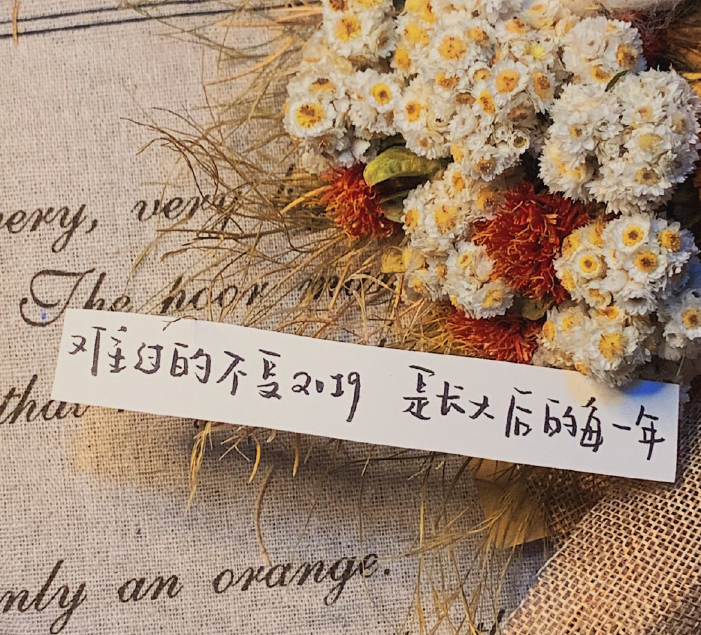 ery, very
The poor
难过的不是2019 是长大后的每一年
that
nly an orange.